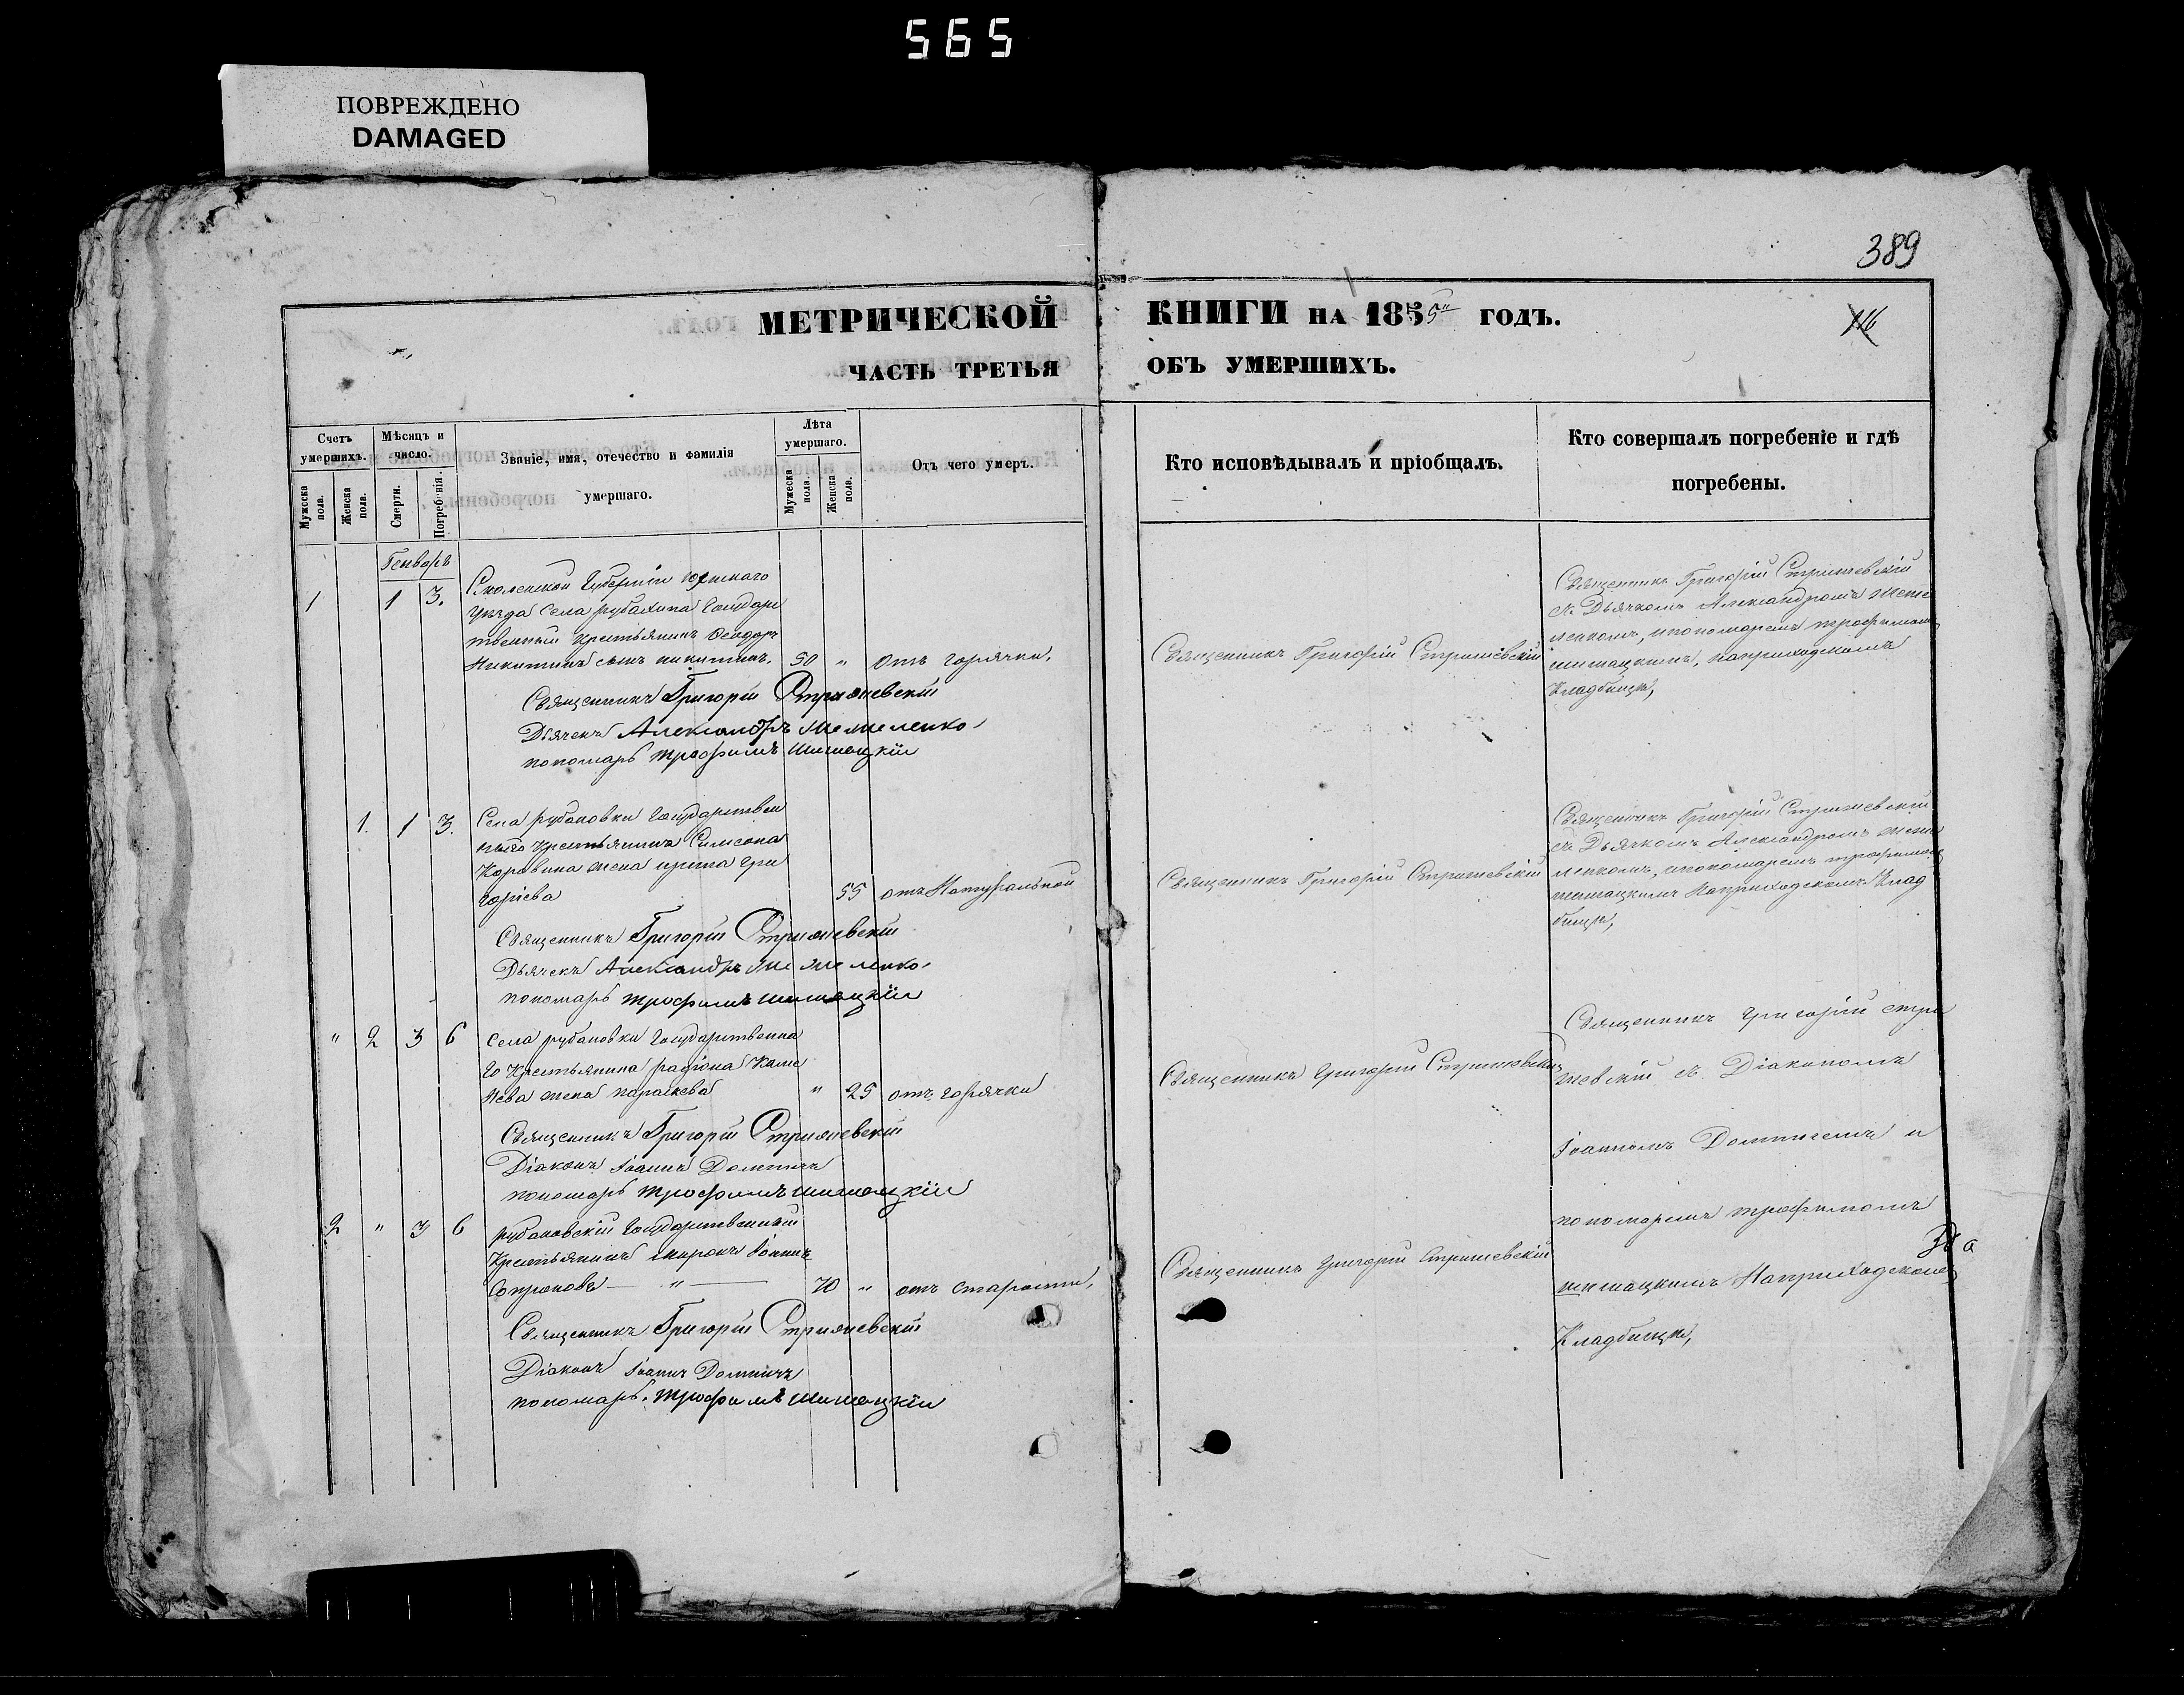 565
ПОВРЕЖДЕНО
DAMAGED
389
МЕТРИЧЕСКОЙ КНИГИ НА 1855 ГОДЪ.
116
ЧАСТЬ ТРЕТЬЯ ОБЪ УМЕРШИХЪ.
Счетъ умершихъ.
Мужеска пола.
Женска пола.
Мѣсяцъ и число.
Смерти.
Погребенія.
Званіе, имя, отечество и фамилія умершаго.
Лѣта умершаго.
Мужеска пола.
Женска пола.
Отъ чего умеръ.
Кто исповѣдывалъ и пріобщалъ.
Кто совершалъ погребеніе и гдѣ погребены.
Генварь
1 1 3.
Смоленской Губерніи
уѣзда Села Государ
твенный Крестьянинъ Ѳеодоръ
Никитинъ сынъ никитинъ. 50 " отъ горячки.
Священникъ Григорій Стрижевскій
Дьячекъ Александръ
пономарь трофимъ шишацкій
Священникъ Григорій Стрижевскій
Священникъ Григорій Стрижевскій
съ Дьячкомъ Александромъ
ленкомъ, ипономаремъ трофимомъ
шишацкимъ, наприходскомъ
Кладбищѣ,
1. 1 3.
Села рубановки Государствен
наго Крестьянина Симеона
Коровина жена ирина Гри
горіева 55 отъ Натуральной
Священникъ Григорій Стрижевскій
Дьячекъ Александръ
пономарь трофимъ шишацкій
Священникъ Григорій Стрижевскій
Священникъ Григорій Стрижевскій
съ Дьячкомъ Александромъ
ленкомъ, ипономаремъ трофимомъ
шишацкимъ Наприходскомъ Клад
бищѣ,
" 2 3 6
Села рубановки Государственна
го Крестьянина
жена параскева " 25 отъ горячки
Священникъ Григорій Стрижевскій
Діаконъ Іоаннъ
пономарь трофимъ шишацкій
Священникъ Григорій Стрижевскій
Священникъ Григорій стри
жевскій съ Діакономъ
Іоанномъ и
пономаремъ трофимомъ
шишацкимъ Наприходскомъ
Кладбищѣ,
2 " 3 6
рубановскій Государственный
Крестьянинъ
" 70 " отъ старости,
Священникъ Григорій Стрижевскій
Діаконъ Іоаннъ
пономарь трофимъ шишацкій
Священникъ Григорій Стрижевскій